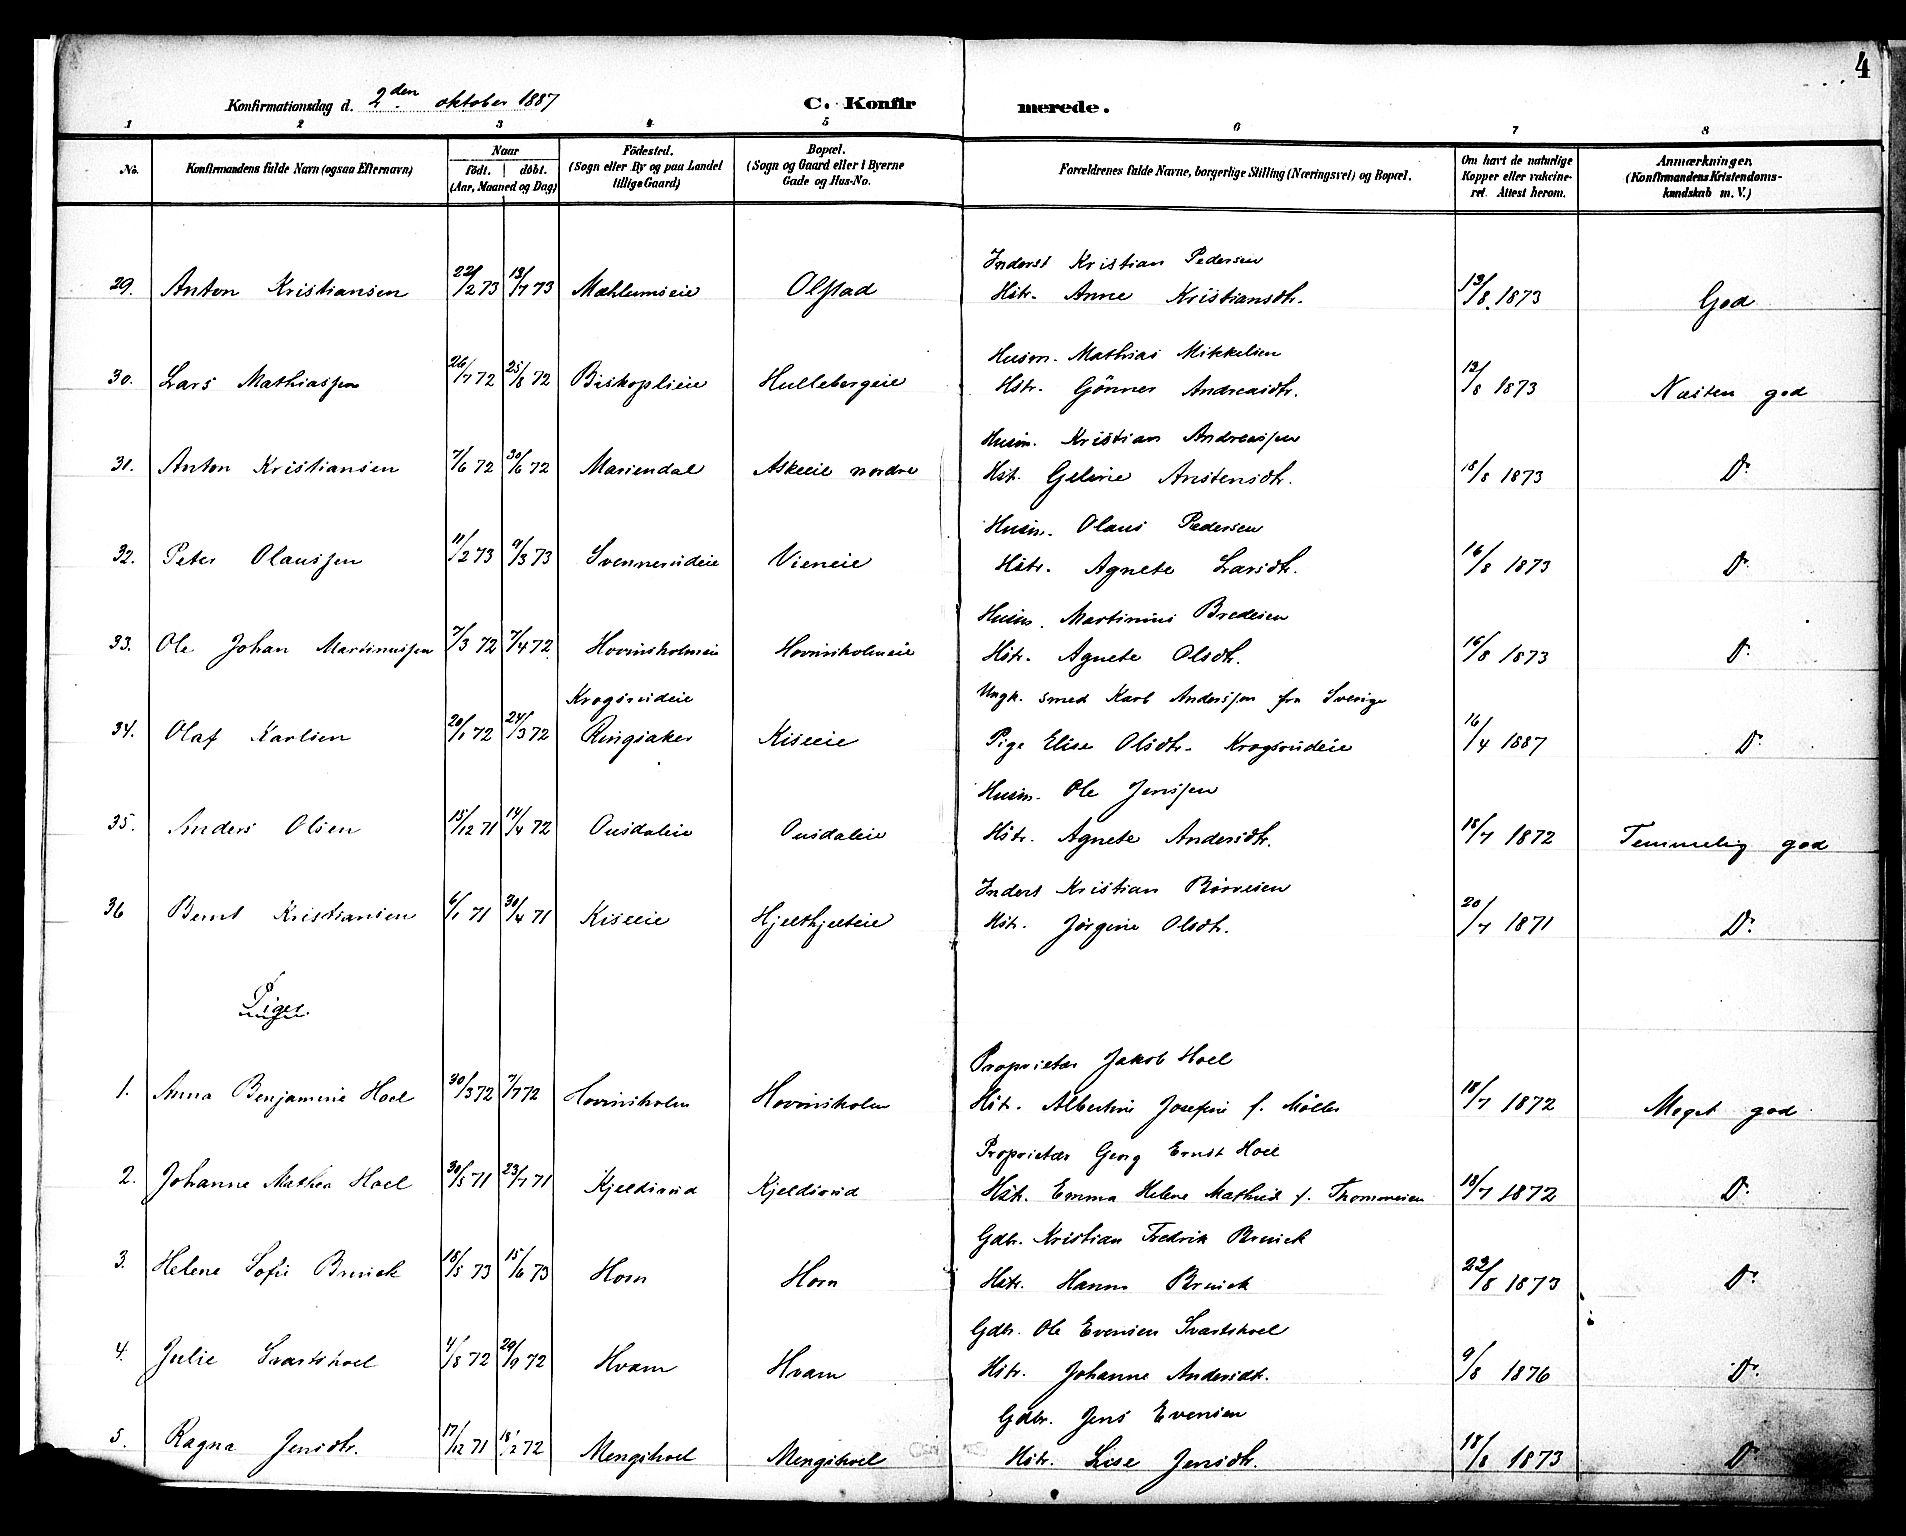 4
Konfirmationsdag d. 2den oktober 1887 C. Konfirmerede.
1 2 3 4 5 6 7 8
No. Konfirmandens fulde Navn (ogsaa Efternavn) Naar födt. döbt. (Aar, Maaned og Dag) Födested. (Sogn eller By og paa Landet tillige Gaard) Bopæl. (Sogn og Gaard eller i Byerne Gade og Hus-No. Forældrenes fulde Navne, borgerlige Stilling (Næringsvei) og Bopæl. Om havt de naturlige Kopper eller vakcineret. Attest herom. Anmærkninger. (Konfirmandens Kristendomskundskab m. V.)
Inderst Kristian Pedersen
29. Anton Kristiansen 22/2 73 13/7 73 Mæhlumseie Olstad Hstr. Anne Kristiansdtr. 13/8 1873 God
Husm. Mathias Mikkelsen
30. Lars Mathiassen 26/7 72 25/8 72 Biskoplieie Hullebergeie Hstr. Gönner Andreasdtr. 13/8 1873 Næsten god
Husm. Kristian Andreassen
31. Anton Kristiansen 7/6 72 30/6 72 Mariendal Askeeie nordre Hst. Geline Arstensdtr. 18/8 1873 Do
Husm. Olaus Pedersen
32. Peter Olaussen 11/2 73 9/3 73 Svennerudeie Vieneie Hstr. Agnete Larsdtr. 16/8 1873 Do
Husm. Martinus Bredesen
33. Ole Johan Martinussen 7/3 72 7/4 72 Hovinsholmeie Hovinsholmeie Hstr. Agnete Olsdtr. 16/8 1873 Do
Krogsrudeie Ungk. smed Karl Anderssen fra Sverige
34. Olaf Karlsen 20/1 72 24/3 72 Ringsaker Kiseeie Pige Elise Olsdtr. Krogsrudeie 16/4 1887 Do
Husm. Ole Jenssen
35. Anders Olsen 15/12 71 14/4 72 Ousdaleie Ousdaleie Hstr. Agnete Andersdtr. 18/7 1872 Temmelig god
Inderst Kristian Börresen
36 Bernt Kristiansen 6/1 71 30/4 71 Kiseeie Hjelthjelteie Hstr. Jörgine Olsdtr. 20/7 1871 Do
Piger
Proprietær Jakob Hoel
1. Anna Benjamine Hoel 30/3 72 7/7 72 Hovinsholm Hovinsholm Hstr. Albertine Josefine f. Möller 18/7 1872 Meget god
Proprietær Georg Ernst Hoel
2. Johanne Mathea Hoel 30/5 71 23/7 71 Kjeldsrud Kjeldsrud Hstr. Emma Helene Mathild f. Thommesen 18/7 1872 Do
Gdbr. Kristian Fredrik Bruick
3. Helene Sofie Bruick 18/5 73 15/6 73 Horn Horn Hstr. Hanna Bruick 22/8 1873 Do
Gdbr. Ole Evensen Svartshoel
4. Julie Svartshoel 4/8 72 29/9 72 Hvam Hvam Hstr. Johanne Andersdtr. 9/8 1876 Do
Gdbr. Jens Evensen
5. Ragna Jensdtr. 17/12 71 18/2 72 Mengshoel Mengshoel Hstr. Lise Jensdtr. 18/8 1873 Do